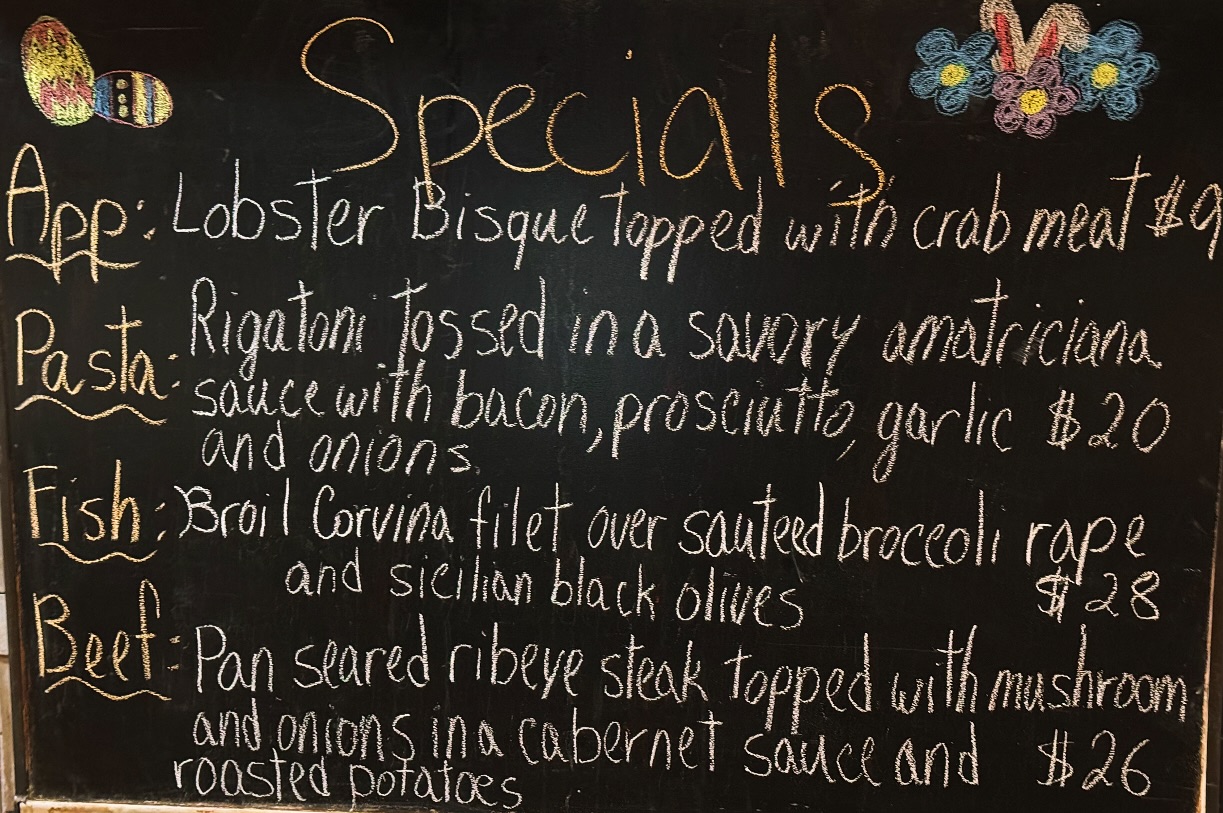 Specials
App: Lobster Bisque topped with crab meat $9
Pasta: Rigatoni tossed in a savory amatriciana
sauce with bacon, prosciutto, garlic $20
and onions
Fish: Broil Corvina filet over sauteed broccoli rape
and sicilian black olives $28
Beef: Pan seared ribeye steak topped with mushroom
and onions in a cabernet sauce and $26
roasted potatoes